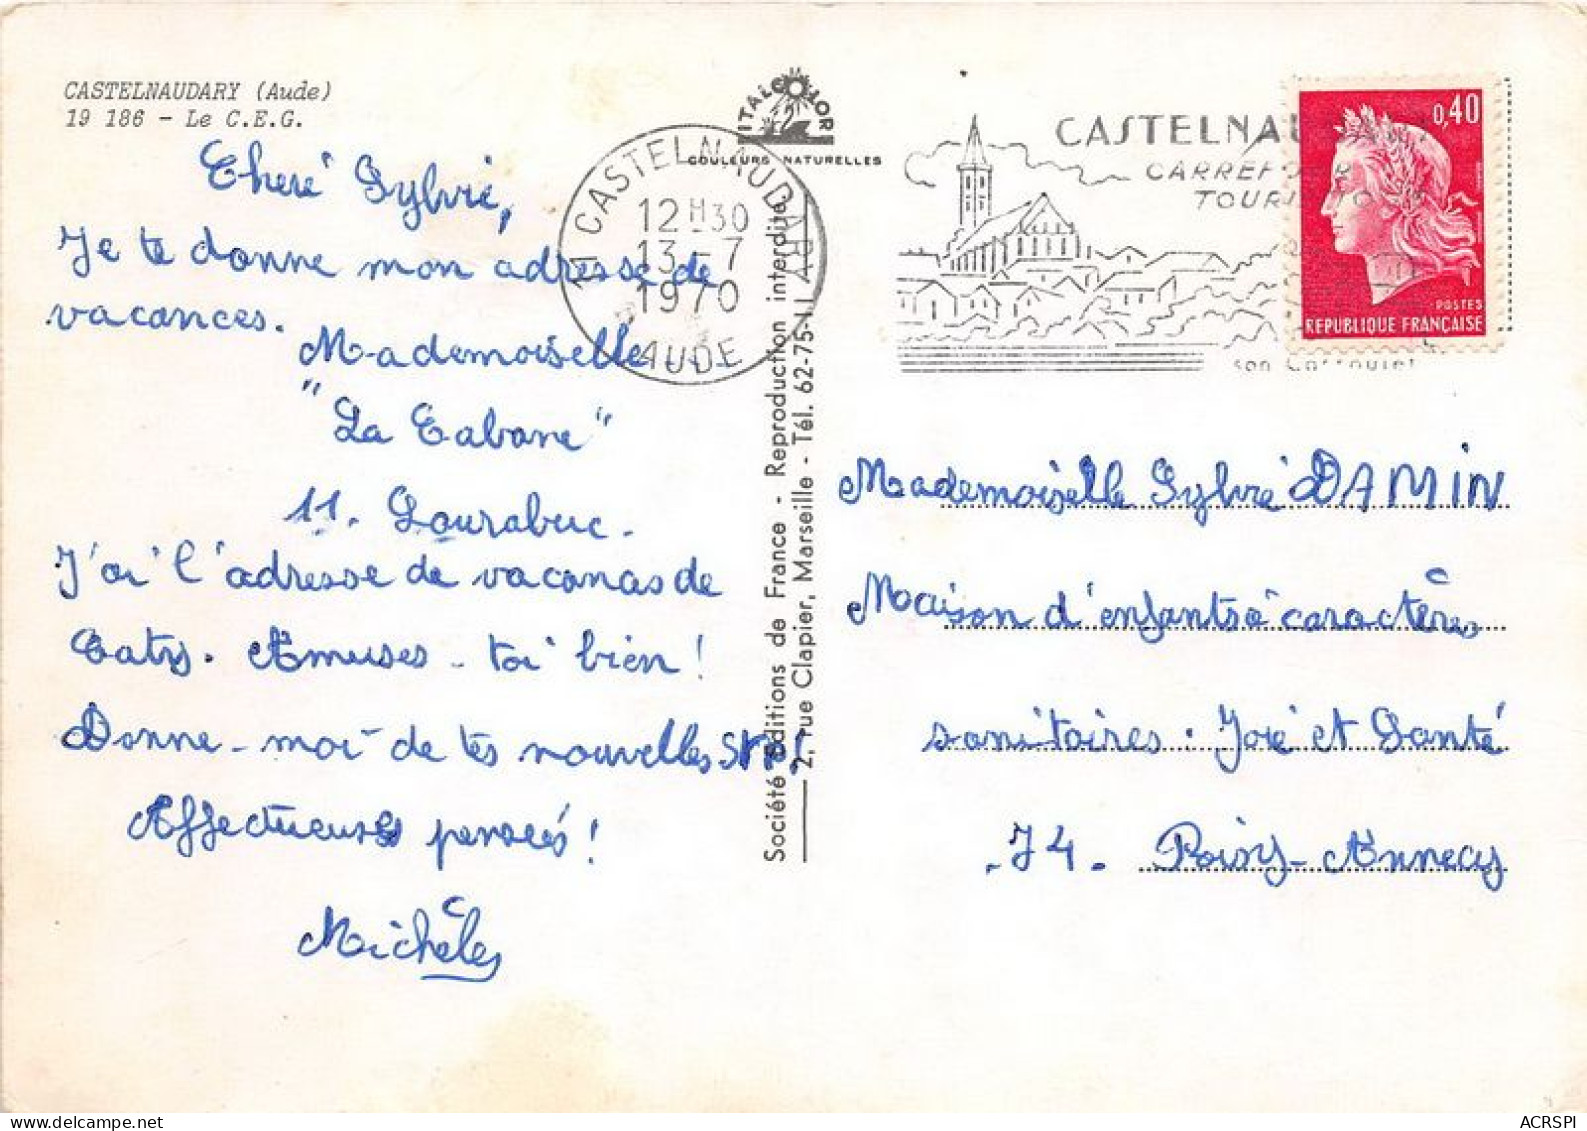 CASTELNAUDARY (Aude)
19 186 - Le C.E.G.
Cheré Sylvie,
Je te donne mon adresse de
vacances.
Mademoiselle
"La Cabane"
11. Lourabuc.
J'ai l'adresse de vacanas de
Caty. Amuses-toi bien!
Donne-moi de tes nouvelles
Affectueuses pensées!
Michèle
ITALCOLOR
COULEURS NATURELLES
11 CASTELNAUDARY
12H30
13-7
1970
AUDE
Société Editions de France - Reproduction interdite
2, rue Clapier, Marseille - Tél. 62-75-11
CASTELNAU
CARREFOUR
TOURI
son Cassoulet
0,40
POSTES
REPUBLIQUE FRANÇAISE
Mademoiselle Sylvie DAMIN
Maison d'enfants à caractère
sanitaires. Joie et Santé
-74- Poisy-Annecy
ACRSPI